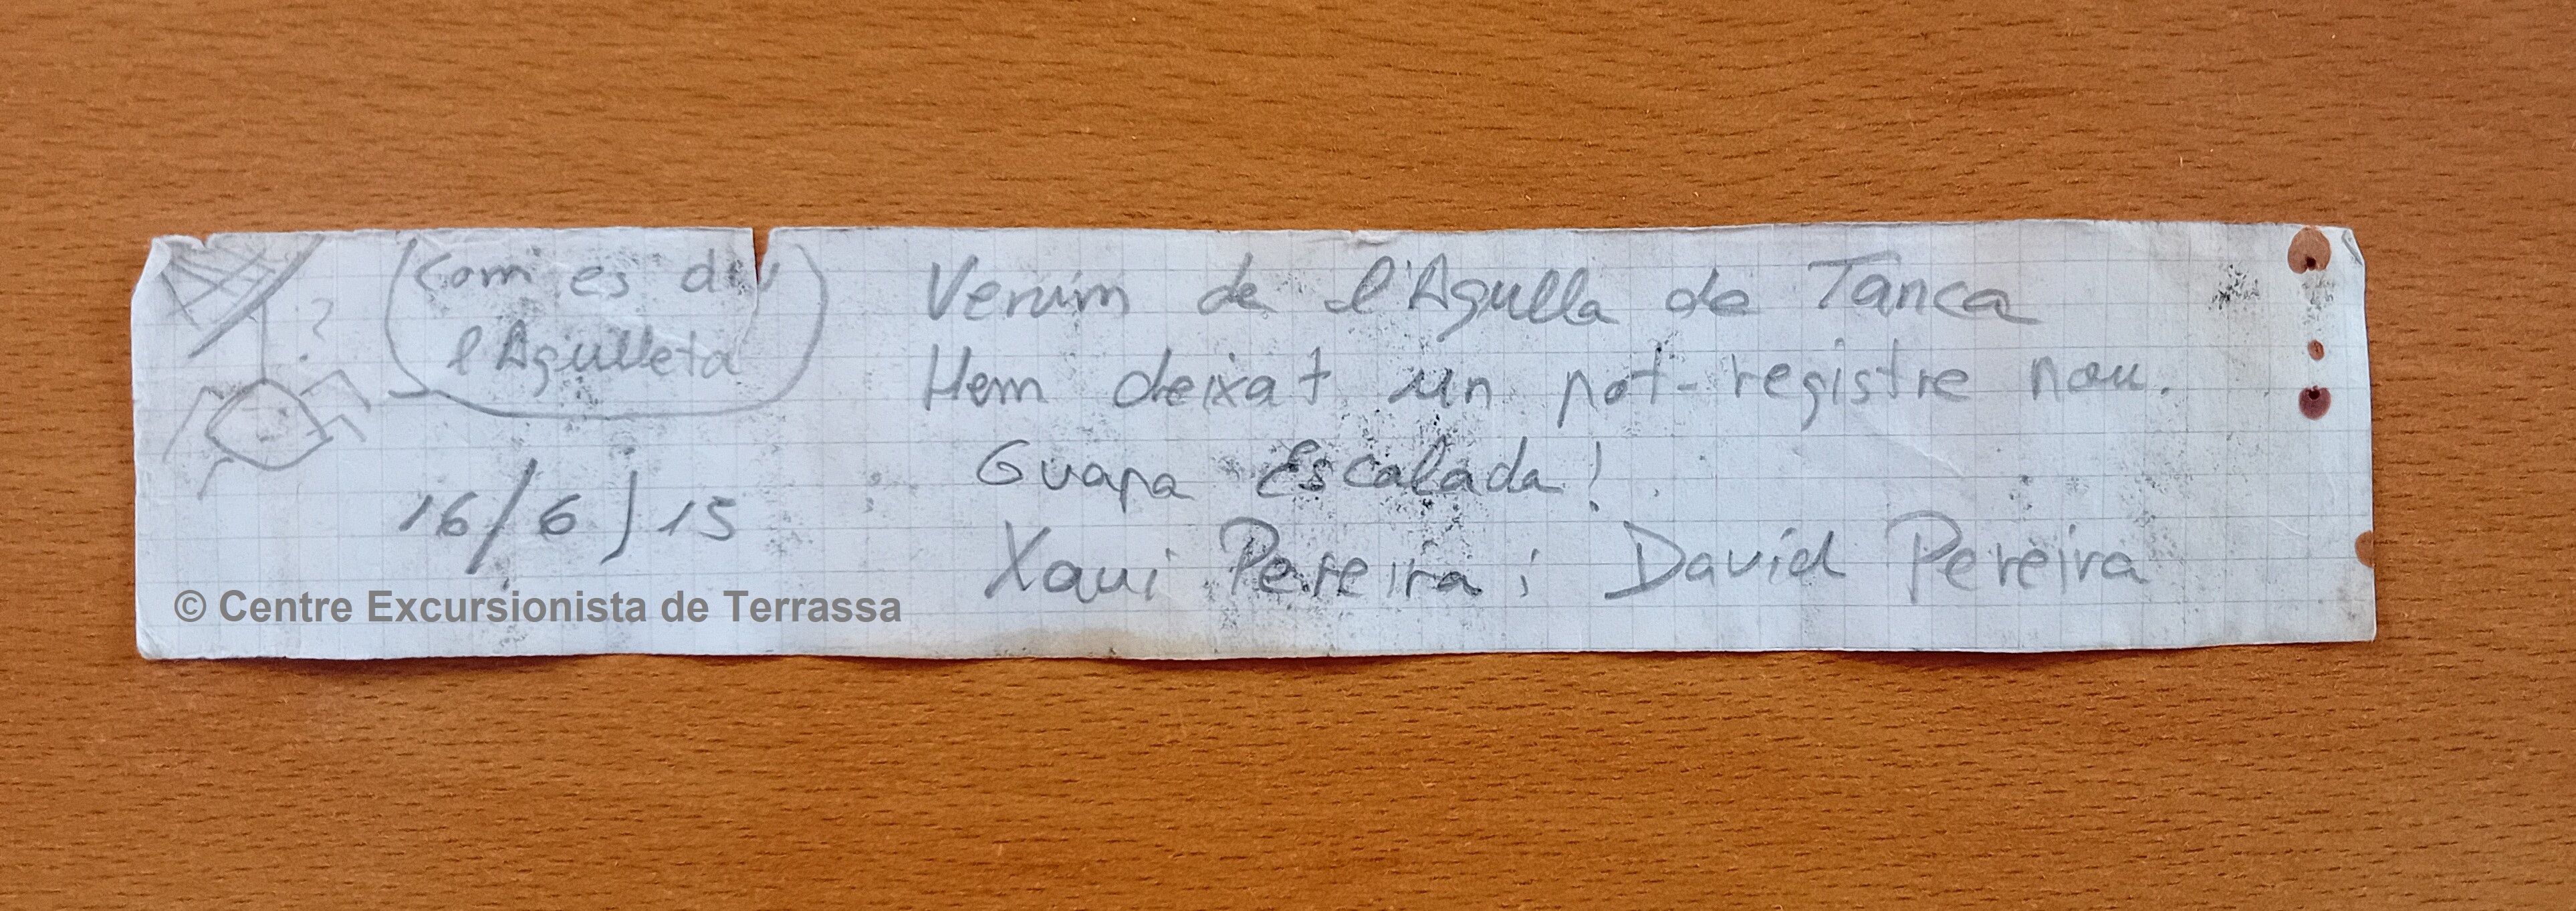 ?
Com es diu
l'Agulleta
16/6/15
Venim de l'Agulla de Tanca
Hem deixat un pot-registre nou.
Guapa Escalada!
Xavi Pereira i David Pereira
© Centre Excursionista de Terrassa